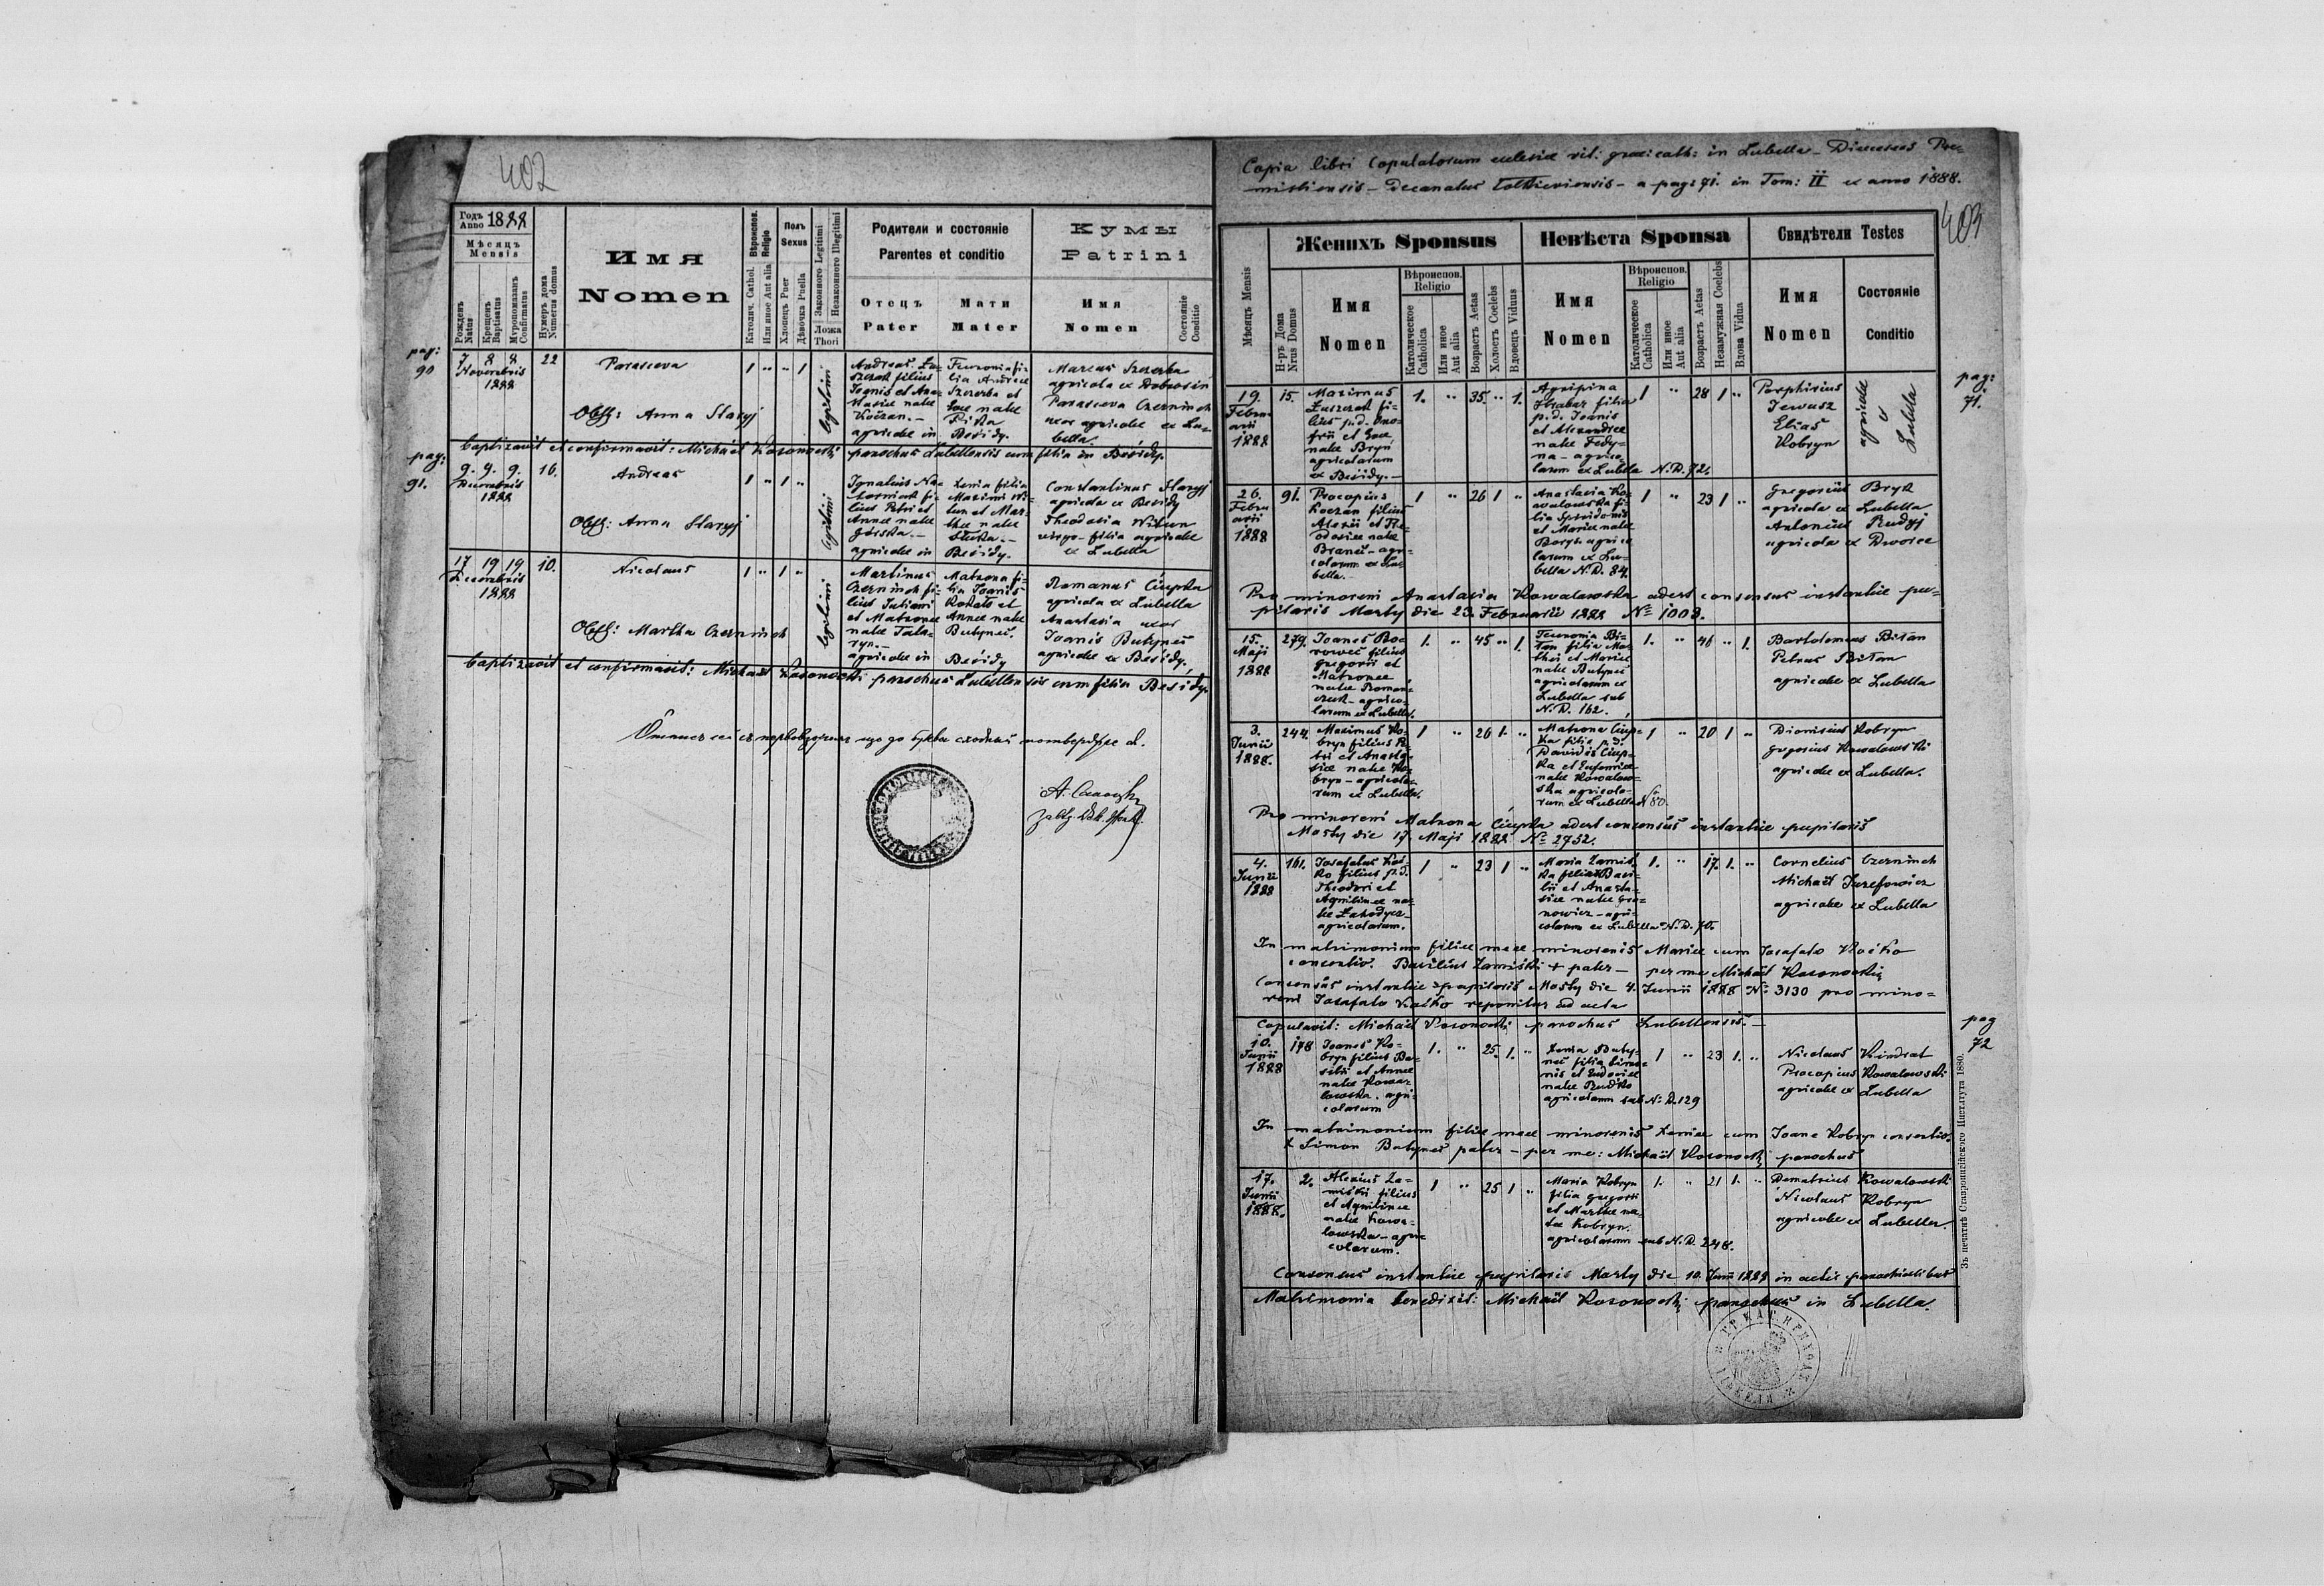 402
Годъ Anno 1888
Мѣсяцъ
Mensis
Рожденъ Natus
Крещенъ Baptisatus
Мѵропомазанъ Confirmatus
Нумеръ дома Numerus domus
Имя
Nomen
Вѣроиспов. Religio
Католич. Cathol.
Или иное Aut alia
Полъ Sexus
Хлопецъ Puer
Дѣвочка Puella
Законного Legitimi
Незаконного Illegitimi
Ложа
Thori
Родители и состоянiе
Parentes et conditio
Отецъ
Pater
Мати
Mater
Кумы
Patrini
Имя
Nomen
Состоянiе Conditio
pag: 90
7 8 8
Novembris
1888
22
Parasceva
1 " " 1
legitimi
Obst: Anna Staryj
Andreas
filius
Joanis et Ana-
stasiae natae
agricolae in
Fewronia fi-
lia Andreae
Szczerba et
Evae natae
Besidy.
Marcus Szczerba
agricola ex Dobrosin
Parasceva Czerninch
uxor agricolae ex Lu-
bella
baptizavit et confirmavit: Michaël Kosonocki parochus Lubellensis cum filia in Besidy.
pag: 91.
9. 9. 9.
Decembris
1888
16.
Andreas
1 " 1 "
legitimi
Obst: Anna Staryj
Ignatius
filius Petri et
Annae natae
Górska.—
agricolae in
Xenia filia
Maximi
et Mar-
thae natae
Besidy.
Constantinus Staryj
agricola ex Besidy
Theodosia
virgo - filia agricolae
ex Lubella
17 19 19
Decembris
1888
10.
Nicolaus
1 " 1 "
legitimi
Obst: Martha Czerninch
Martinus
Czerninch fi-
lius Juliani
et Matronae
natae
agricolae in
Matrona fi-
lia Joanis
et
Annae natae
Butyneć.
Besidy
Romanus Ciupka
agricola ex Lubella
Anastasia uxor
Joanis Butyneć
agricolae ex Besidy.
baptizavit et confirmavit: Michaël Kosonocki parochus Lubellensis cum filia Besidy.
Copia libri Copulatorum ecclesiae rit: graec: cath: in Lubella - Dioeceseos Pre-
misliensis - Decanatus Żolkieviensis - a pag: 71. in Tom: II ex anno 1888.
403
Мѣсяцъ Mensis
Н-ръ Дома Nrus Domus
Женихъ Sponsus
Имя
Nomen
Вѣроиспов.
Religio
Католическое Catholica
Или иное Aut alia
Возрастъ Aetas
Холостъ Coelebs
Вдовецъ Viduus
Невѣста Sponsa
Имя
Nomen
Вѣроиспов.
Religio
Католическое Catholica
Или иное Aut alia
Возрастъ Aetas
Незамужная Coelebs
Вдова Vidua
Свидѣтели Testes
Имя
Nomen
Состоянiе
Conditio
pag: 71.
19.
Febru-
arii
1888
15.
Maximus
fi-
lius p.d. Ono-
frii et Evae
natae Bryn
agricolarum
ex Besidy.—
1. " 35. " 1.
Agripina
Hrabar filia
p.d. Joanis
et Alexandrae
natae Fedy-
na - agrico-
larum ex Lubella N.D. 72.
1 " 28 1 "
Porphirius
Jarusz
Elias
Kobryn
agricolae
ex
Lubella
26.
Febru-
arii
1888
91.
Procopius
Koczan filius
Alexii et The-
odosiae natae
- agri-
colarum ex Lu-
bella.—
1 " 26 1 "
Anastasia Ko-
walowska fi-
lia Spiridonis
et Mariae natae
Borys agrico-
larum ex Lu-
bella N.D. 84.
1 " 23 1 "
Gregorius Bryk
agricola ex Lubella
Antonius Rudyj
agricola ex Dworce
Pro minoreni Anastasia Kowalowska adest consensus instantiae pu-
pilaris Mosty die 23 Februarii 1888 No 1003.
15.
Maji
1888
279.
Joanes Bo-
roweć filius
Gregorii et
Matronae
natae Roman-
- agrico-
larum ex Lubella.
1. " 45 " 1.
Fewronia Bi-
tan filia Mat-
thei et Mariae
natae Butyneć
agricolarum ex
Lubella sub
N.D. 162.
1. " 46 " 1.
Bartolomeus Bitan
Petrus Bitan
agricolae ex Lubella
3.
Junii
1888.
244.
Maximus Ko-
bryn filius
et Anasta-
siae natae Ko-
bryn - agricola-
rum ex Lubella.
1 " 26 1. "
Matrona Ciup-
ka filia p.d.
Davidis Ciup-
ka et Eufemiae
natae Kowalow-
ska agricola-
rum ex Lubella No 80.
1 " 20 1 "
Dionisius Kobryn
Gregorius Kowalowski
agricolae ex Lubella.
Pro minoreni Matrona Ciupka adest consensus instantiae pupilaris
Mosty die 17. Maji 1888 No 2752.
4.
Junii
1888
161.
Josafatus Koć-
ko filius p.d.
Theodori et
Aquilinae na-
tae Zahodycz
agricolarum.
1 " 23 1 "
Maria Zamiś-
ka filia Basi-
lii et Anasta-
siae natae
- agri-
colarum ex Lubella N.D. 70.
1. " 17. 1. "
Cornelius Czerninch
Michaël Juzefowicz
agricolae ex Lubella
In matrimonium filiae meae minorenis Mariae cum Josafato Koćko
consentio. Basilius Zamiśki + pater — per me Michaël Kosonocki
Consensus instantiae pupilaris Mosty die 4. Junii 1888 No 3130 pro mino-
reni Josafato Koćko reponitur ad acta
Copulavit: Michaël Kosonocki parochus Lubellensis.—
pag 72
10.
Junii
1888
178
Joanes Ko-
bryn filius Ba-
silii et Annae
natae Kowa-
lowska. agri-
colarum
1. " 25. 1. "
Xenia Buty-
neć filia Simo-
nis et Eudociae
natae Rudko
agricolarum sub N.D. 129
1 " 23 1. "
Nicolaus Kindrat
Procopius Kowalowski
agricolae ex Lubella
In matrimonium filiae meae minorenis Xeniae cum Joane Kobryn consentio.
+ Simon Butyneć pater — per me: Michaël Kosonocki parochus
17.
Junii
1888.
2.
Alexius Za-
miśki filius
et Aquilinae
natae Kowa-
lowska - agri-
colarum.
1 " 25 1 "
Maria Kobryn
filia Gregorii
et Marthae na-
tae Kobryn.
agricolarum sub N.D. 248.
1. " 21 1. "
Demetrius Kowalowski
Nicolaus Kobryn
agricolae ex Lubella.
Consensus instantiae pupilaris Mosty die 10. Junii 1888 in actis parochialibus
Matrimonia benedixit: Michaël Kosonocki parochus in Lubella.
Зъ печатнѣ Ставропигiйского Института 1880.